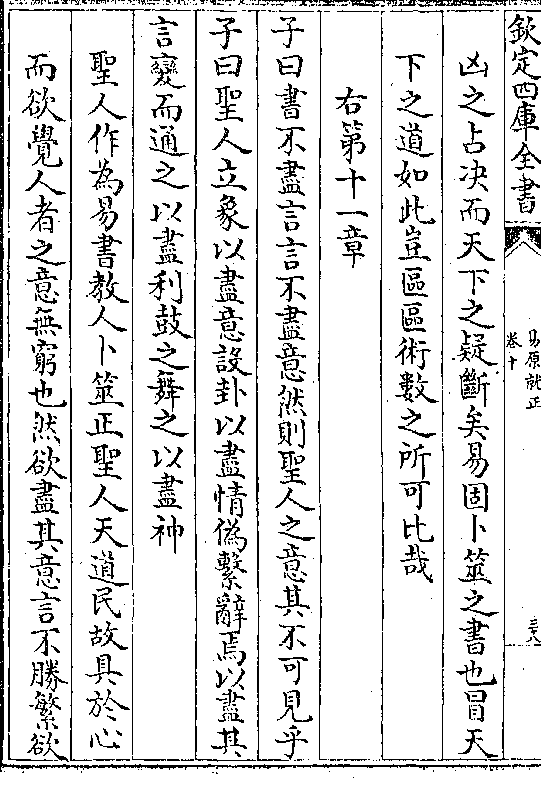 欽定四庫全書
易原就正
卷十
三六
凶之占决而天下之疑斷矣易固卜筮之書也冒天
下之道如此豈區區術數之所可比哉
右第十一章
子曰書不盡言言不盡意然則聖人之意其不可見乎
子曰聖人立象以盡意設卦以盡情偽繫辭焉以盡其
言變而通之以盡利鼓之舞之以盡神
聖人作為易書教人卜筮正聖人天道民故具於心
而欲覺人者之意無窮也然欲盡其意言不勝繁欲